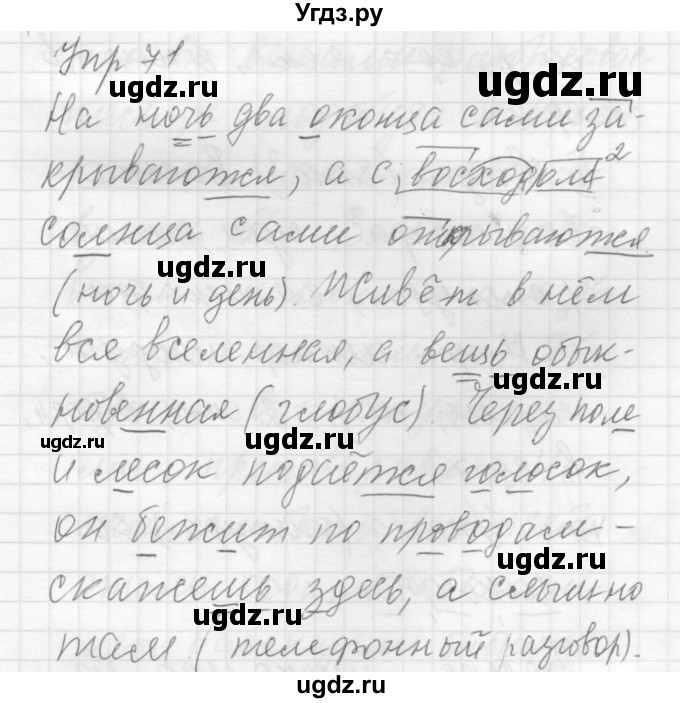 Угдз.ру
Упр 71
ugdz.ru ugdz.ru
На ночь два оконца сами за-
крываются, а с восходом 2
солнца сами открываются
ugdz.ru
(ночь и день). Живёт в нём
вся вселенная, а вещь обык-
ugdz.ru
новенная (глобус). Через поле
ugdz.ru ugdz.ru
и лесок подаётся голосок,
он бежит по проводам –
ugdz.ru
скажешь здесь, а слышно
ugdz.ru
там (телефонный разговор).
ugdz.ru